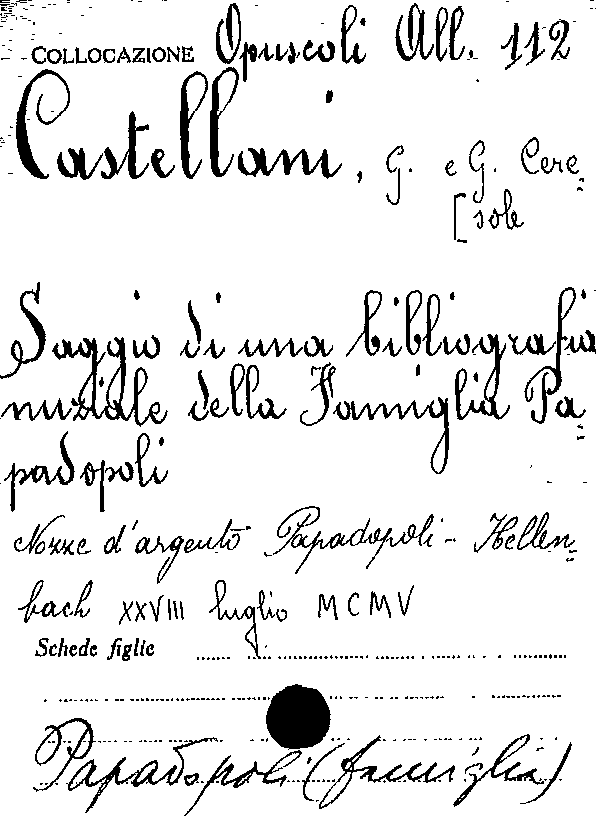 COLLOCAZIONE Opuscoli All. 112
Castellani, G. e G. Cere=
[sole
Saggio di una bibliografia
nuziale della Famiglia Pa=
padopoli
Nozze d'argento Papadopoli - Hellen=
bach XXVIII luglio MCMV
Schede figlie
Papadopoli (famiglia)